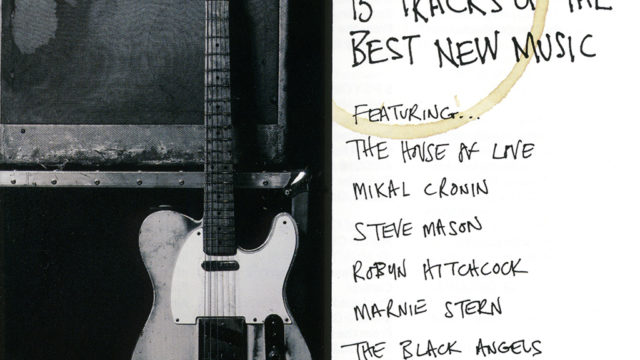 15 TRACKS OF THE
BEST NEW MUSIC
FEATURING...
THE HOUSE OF LOVE
MIKAL CRONIN
STEVE MASON
ROBYN HITCHCOCK
MARNIE STERN
THE BLACK ANGELS